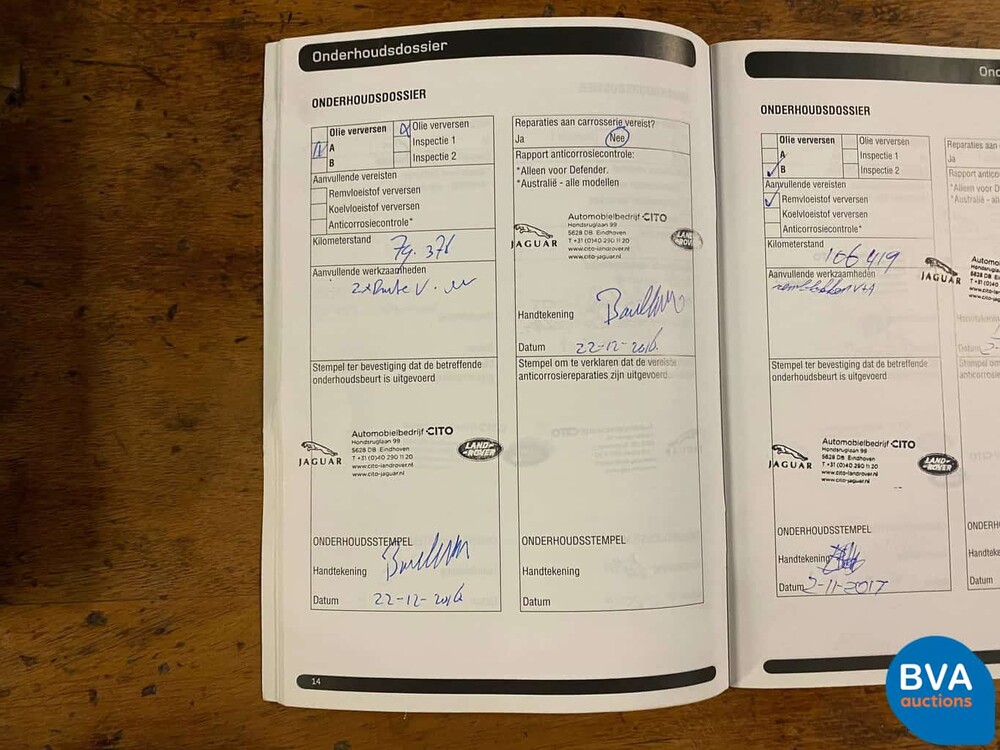 Onderhoudsdossier
ONDERHOUDSDOSSIER
Olie verversen
A
B
Olie verversen
Inspectie 1
Inspectie 2
Aanvullende vereisten
Remvloeistof verversen
Koelvloeistof verversen
Anticorrosiecontrole*
Kilometerstand
79.376
Aanvullende werkzaamheden
Stempel ter bevestiging dat de betreffende
onderhoudsbeurt is uitgevoerd
JAGUAR
Automobielbedrijf CITO
Hondsruglaan 99
5628 DB Eindhoven
T +31 (0)40 290 11 20
www.cito-landrover.nl
www.cito-jaguar.nl
LAND-
ROVER
ONDERHOUDSSTEMPEL
Handtekening
Datum 22-12-2016
Reparaties aan carrosserie vereist?
Ja Nee
Rapport anticorrosiecontrole:
*Alleen voor Defender.
*Australië - alle modellen
JAGUAR
Automobielbedrijf CITO
Hondsruglaan 99
5628 DB Eindhoven
T +31 (0)40 290 11 20
www.cito-landrover.nl
www.cito-jaguar.nl
LAND
ROV
Handtekening
Datum 22-12-2016
Stempel om te verklaren dat de vereiste
anticorrosiereparaties zijn uitgevoerd
ONDERHOUDSSTEMPEL
Handtekening
Datum
14
On
ONDERHOUDSDOSSIER
Olie verversen
A
B
Olie verversen
Inspectie 1
Inspectie 2
Aanvullende vereisten
Remvloeistof verversen
Koelvloeistof verversen
Anticorrosiecontrole*
Kilometerstand
106419
Aanvullende werkzaamheden
remblokken V+A
Stempel ter bevestiging dat de betreffende
onderhoudsbeurt is uitgevoerd
JAGUAR
Automobielbedrijf CITO
Hondsruglaan 99
5628 DB Eindhoven
T +31 (0)40 290 11 20
www.cito-landrover.nl
www.cito-jaguar.nl
LAND-
ROVER
ONDERHOUDSSTEMPEL
Handtekening
Datum 2-11-2017
Reparaties aan
Ja
Rapport antico
*Alleen voor D
*Australië - all
JAGUAR
Automo
Hondsru
5628 D
T +31 (0
www.c
www.c
Handtekening
Datum 2-
Stempel om
anticorrosier
ONDERH
Handteke
Datum
BVA
auctions